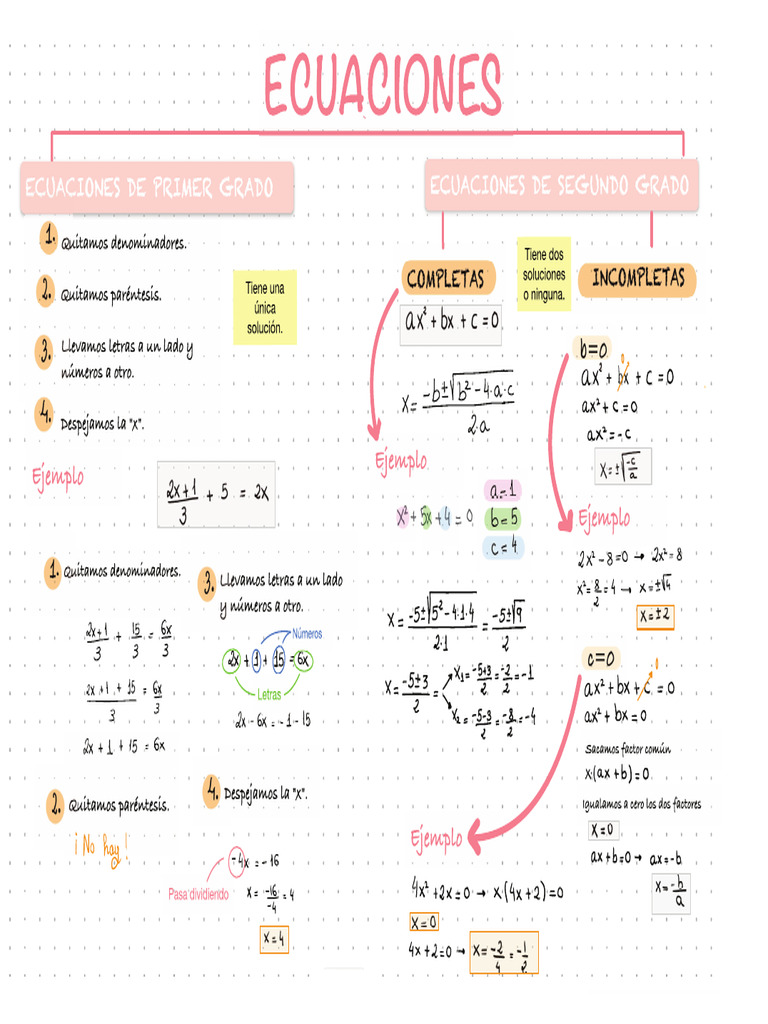 ECUACIONES
ECUACIONES DE PRIMER GRADO
1. Quitamos denominadores.
2. Quitamos paréntesis.
Tiene una
única
solución.
3. Llevamos letras a un lado y
números a otro.
4. Despéjamos la "x".
Ejemplo
(2x+1)/3 + 5 = 2x
1. Quitamos denominadores.
(2x+1)/3 + 15/3 = 6x/3
(2x+1+15)/3 = 6x/3
2x+1+15=6x
2. Quitamos paréntesis.
¡No hay!
3. Llevamos letras a un lado
y números a otro.
Números
2x+1+15=6x
Letras
2x-6x=-1-15
4. Despejamos la "x".
-4x=-16
Pasa dividiendo
x=-16/-4=4
x=4
ECUACIONES DE SEGUNDO GRADO
Tiene dos
soluciones
o ninguna.
COMPLETAS
ax²+bx+c=0
x=(-b±√(b²-4·a·c))/(2·a)
Ejemplo
x²+5x+4=0
a=1
b=5
c=4
x=(-5±√(5²-4·1·4))/(2·1)=(-5±√9)/2
x=(-5±3)/2=
x₁=(-5+3)/2=-2/2=-1
x₂=(-5-3)/2=-8/2=-4
INCOMPLETAS
b=0
0
ax²+bx+c=0
ax²+c=0
ax²=-c
x=±√(-c/a)
Ejemplo
2x²-8=0→2x²=8
x²=8/2=4→x=±√4
x=±2
c=0
0
ax²+bx+c=0
ax²+bx=0
Sacamos factor común
x·(ax+b)=0
Igualamos a cero los dos factores
x=0
ax+b=0→ax=-b
x=-b/a
Ejemplo
4x²+2x=0→x·(4x+2)=0
x=0
4x+2=0→x=-2/4=-1/2